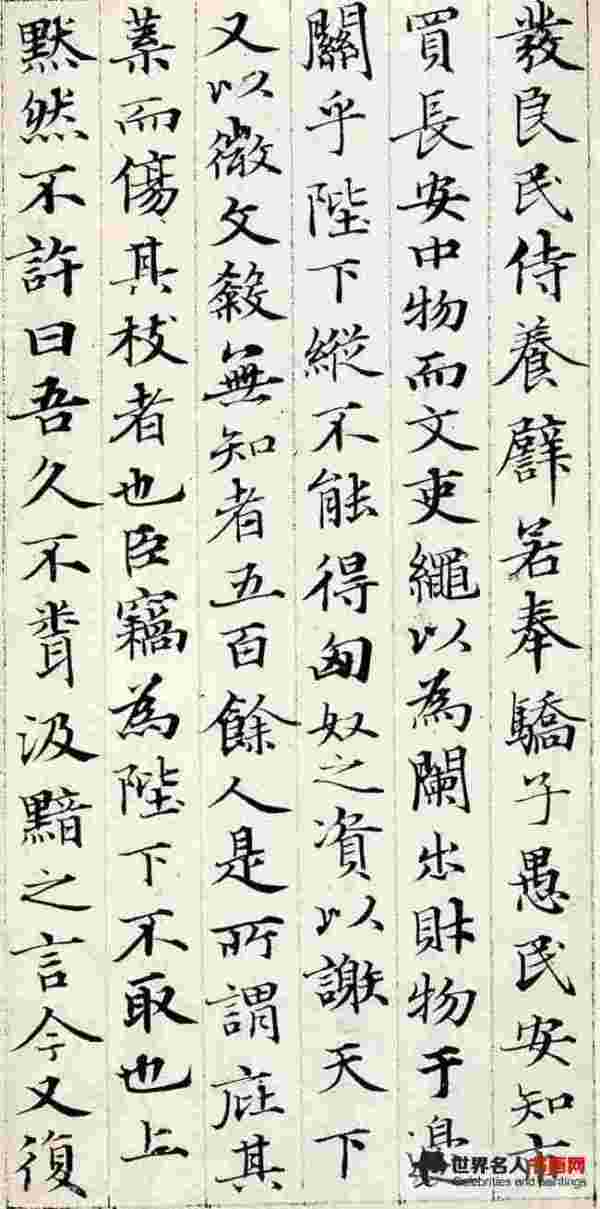 發良民侍養譬若奉驕子愚民安知市
買長安中物而文吏繩以為闌出財物于邊
關乎陛下縱不能得匈奴之資以謝天下
又以微文殺無知者五百餘人是所謂庇其
葉而傷其枝者也臣竊為陛下不取也上
默然不許曰吾久不聞汲黯之言今又復
世界名人书画网
Celebrities and paintings